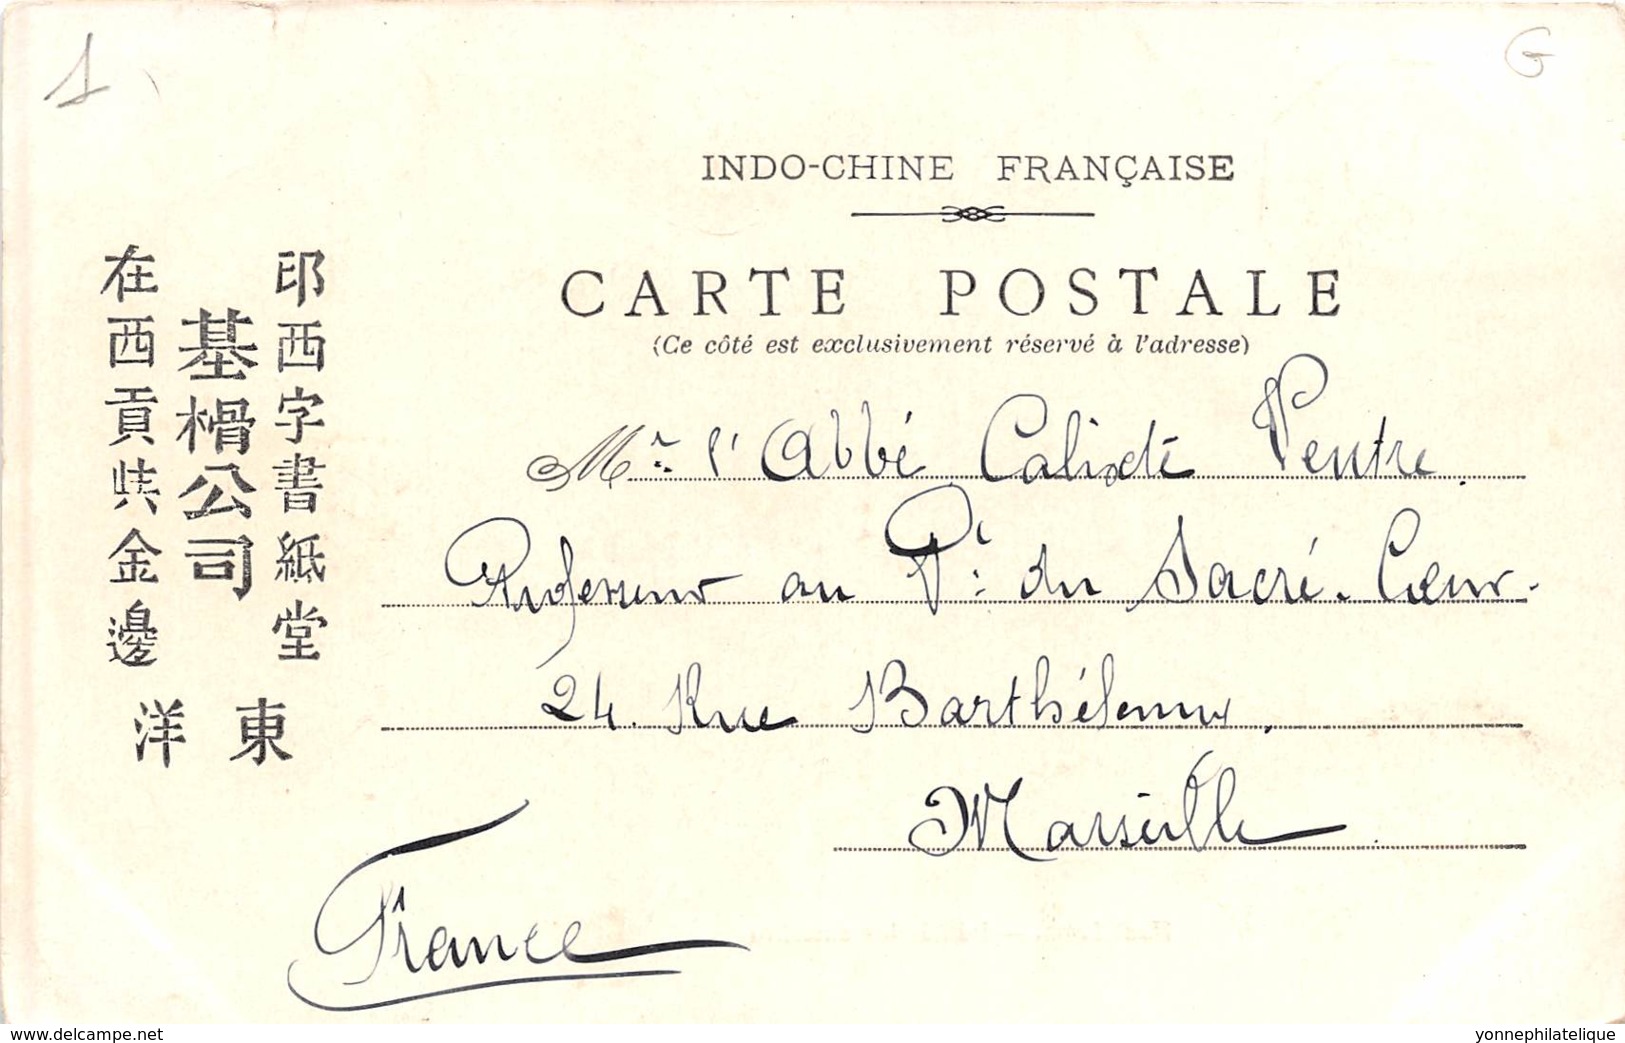 1
G
INDO-CHINE FRANÇAISE
CARTE POSTALE
(Ce côté est exclusivement réservé à l'adresse)
印西字書紙堂
基榾公司
在西貢共金邊
東洋
Mr. l'Abbé Calixte Ventre.
Professeur au Pt. du Sacré-Cœur.
24. Rue Barthélemy.
Marseille
France
www.delcampe.net
yonnephilatelique